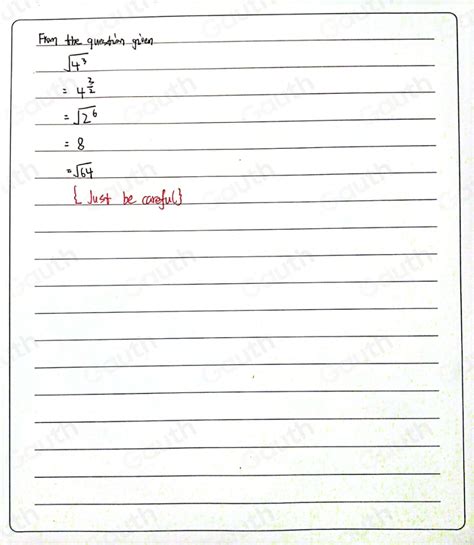 From the question given
√4³
= 4^(3/2)
= √2⁶
= 8
= √64
{ Just be careful}